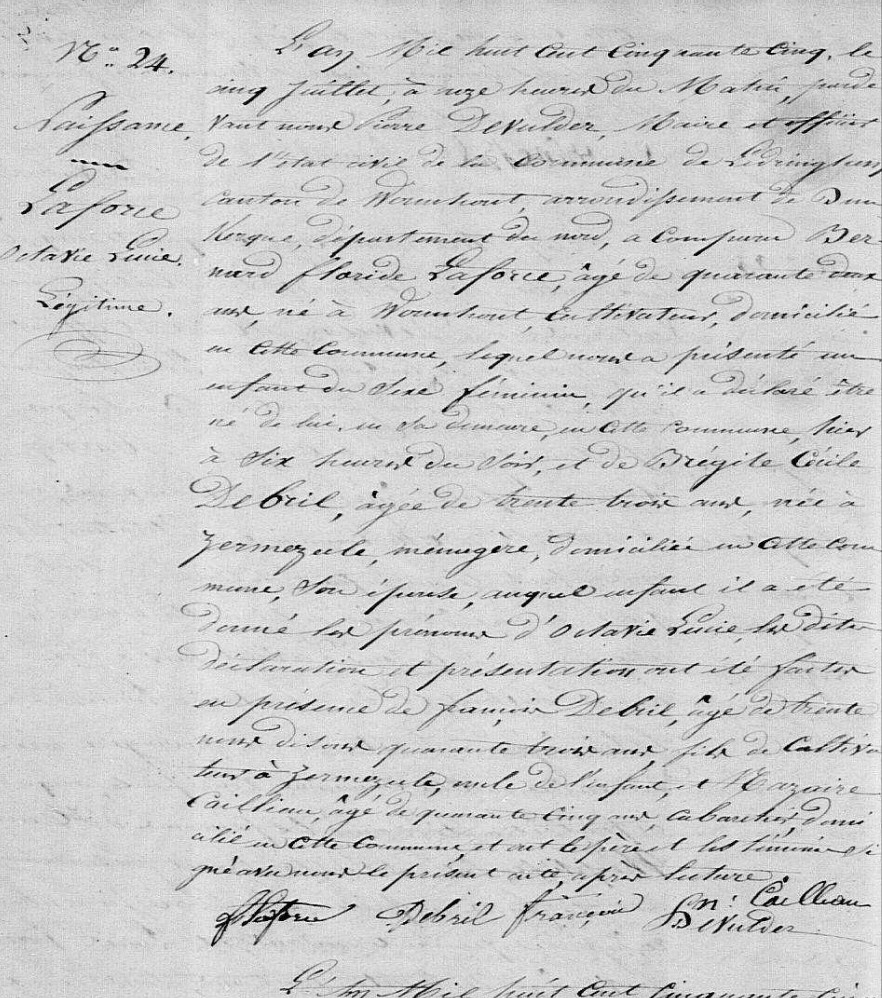 N.° 24.
Naissance.
Laforce
Octavie Lucie.
Légitime.
L'an Mil huit Cent Cinquante Cinq, le
cinq Juillet, à onze heures du Matin, parde
vant nous Pierre DeVulder, Maire et officier
de l'état civil de la Commune de Ledringhem
Canton de Wormhout, arrondissement de Dun
Kerque, département du nord, a Comparu Ber-
nard floride Laforce, âgé de quarante deux
ans, né à Wormhout, Cultivateur, domicilié
en Cette Commune, lequel nous a présenté un
enfant du Sexe féminin, qu'il a déclaré être
né de lui, en Sa demeure, en Cette Commune, hier
à Six heures du Soir, et de Brégite Cécile
Debril, âgée de trente trois ans, née à
Zermezeele, ménagère, domiciliée en Cette Com
mune, Son épouse, auquel enfant il a été
donné les prénoms d'Octavie Lucie, les dites
déclaration et présentation ont été faites
en présence de françois Debril, âgé de trente
nous disons quarante trois ans, fils de Cultiva
teur à Zermezeele, oncle de l'enfant, et Nazaire
Cailliau, âgé de quarante Cinq ans, Cabaretier, domi
cilié en Cette Commune, et ont le père et les témoins Si
gné avec nous le présent acte, après lecture
Laforce Debril françois N. Cailliau
DeVulder
L'An Mil huit Cent Cinquante